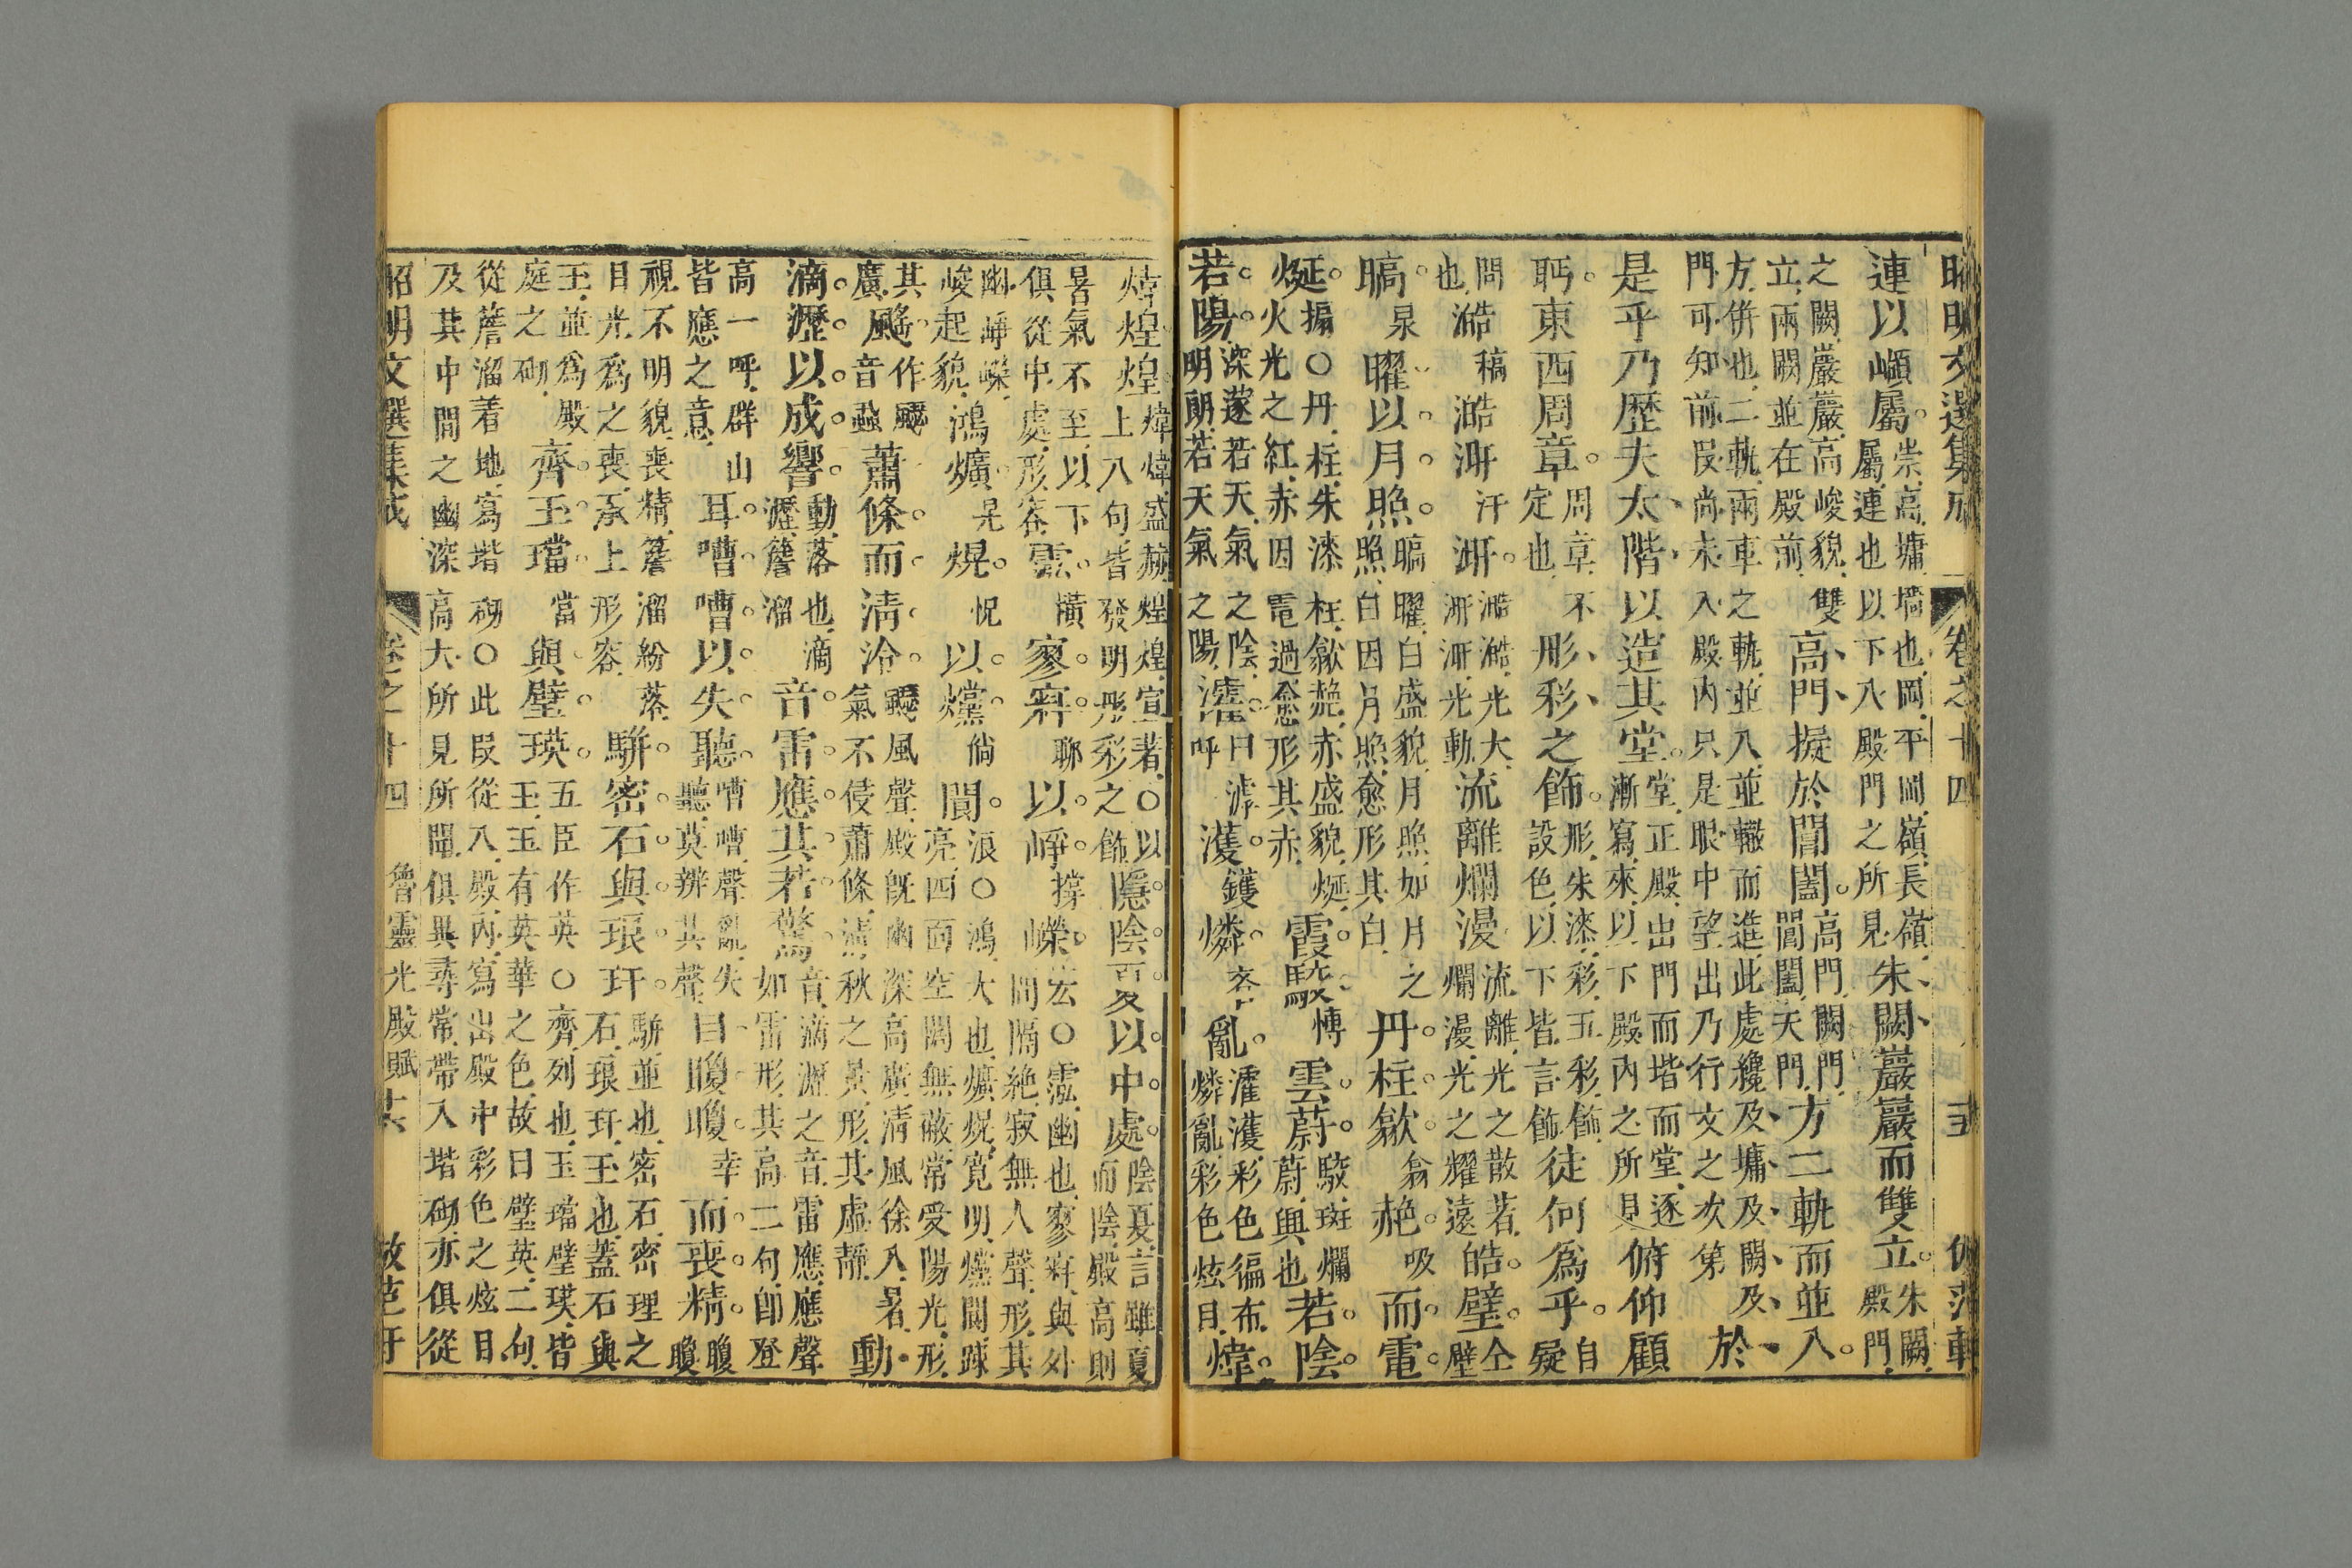 昭明文選集成 卷之十四 五 仿范軒
連以嶺屬。崇高墉墻也岡平岡嶺長嶺屬連也以下八殿門之所見朱闕巖巖而雙立。朱闕殿門
之闕巖巖高峻貌雙立兩闕並在殿前高門擬於閶闔。高門闕門閶闔天門方二軌而並入。
方併也二軌兩車之軌並入並轍而進此處纔及墉及闕及門可知前段尚未入殿內只是眼中望出乃行文之次第於
是乎乃歷夫太階以造其堂。堂正殿出門而堦而堂逐漸寫來以下殿內之所見俯仰顧
眄東西周章。周章不定也彤彩之飾。彤朱漆彩五彩飾設色以下皆言飾徒何爲乎。自疑
問也澔稿澔涆汗涆。澔澔光大涆涆光動流離爛漫流離光之散著爛漫光之耀遠皓。壁。仝壁
暠。杲曜以月照。暠曜白盛貌月照如月之照白因月照愈形其白丹柱歙翕赩吸而電
烻。搧○丹柱朱漆柱歙赩赤盛貌烻火光之紅赤因電過愈形其赤霞駮慱雲蔚。駮斑爛蔚與也若陰
若陽。深邃若天氣之陰明朗若天氣之陽瀖曰滹呼濩鑊燐吝亂。瀖濩彩色徧布燐亂彩色炫目煒
煒煌煌煒煒盛赫煌煌宣著○以上八句皆發明彤彩之飾隱陰夏以中處。陰夏言雖夏而陰嚴高則
暑氣不至以下俱從中處形容霐橫寥窲聊以崢撐嶸宏○霐幽也寥窲與外間隔絶寂無人聲形其
幽崢嶸峻起貌鴻爌晃熀怳以爣倘閬浪○鴻大也爌熀寬明爣閬踈亮四面空闊無蔽常受陽光形
其廣飋作飋音瑟蕭條而清泠。飋風聲殿旣幽深高廣清風徐入暑氣不侵蕭條清秋之景形其虛靜動
滴瀝以成響。動落也滴瀝簷溜音雷應其若驚音滴瀝之音雷應應聲如雷形其高二句卽登
高一呼群山皆應之意耳嘈嘈以失聽。嘈嘈聲亂失聽莫辨其聲目矎矎幸而喪精。矎矎
視不明貌喪精目光爲之喪承上形容簷溜紛落駢密石與琅玕。駢並也密石密理之石琅玕玉也蓋石與
玉並爲殿庭之砌齊玉璫當與璧瑛。五臣作英○齊列也玉璫璧瑛皆玉玉有英華之色故曰璧英二句
從簷溜着地寫堦砌○此段從入殿內寫出殿中彩色之炫目及其中間之幽深高大所見所聞俱異尋常帶入堦砌亦俱從
昭明文選集成 卷之十四 魯靈光殿賦 六